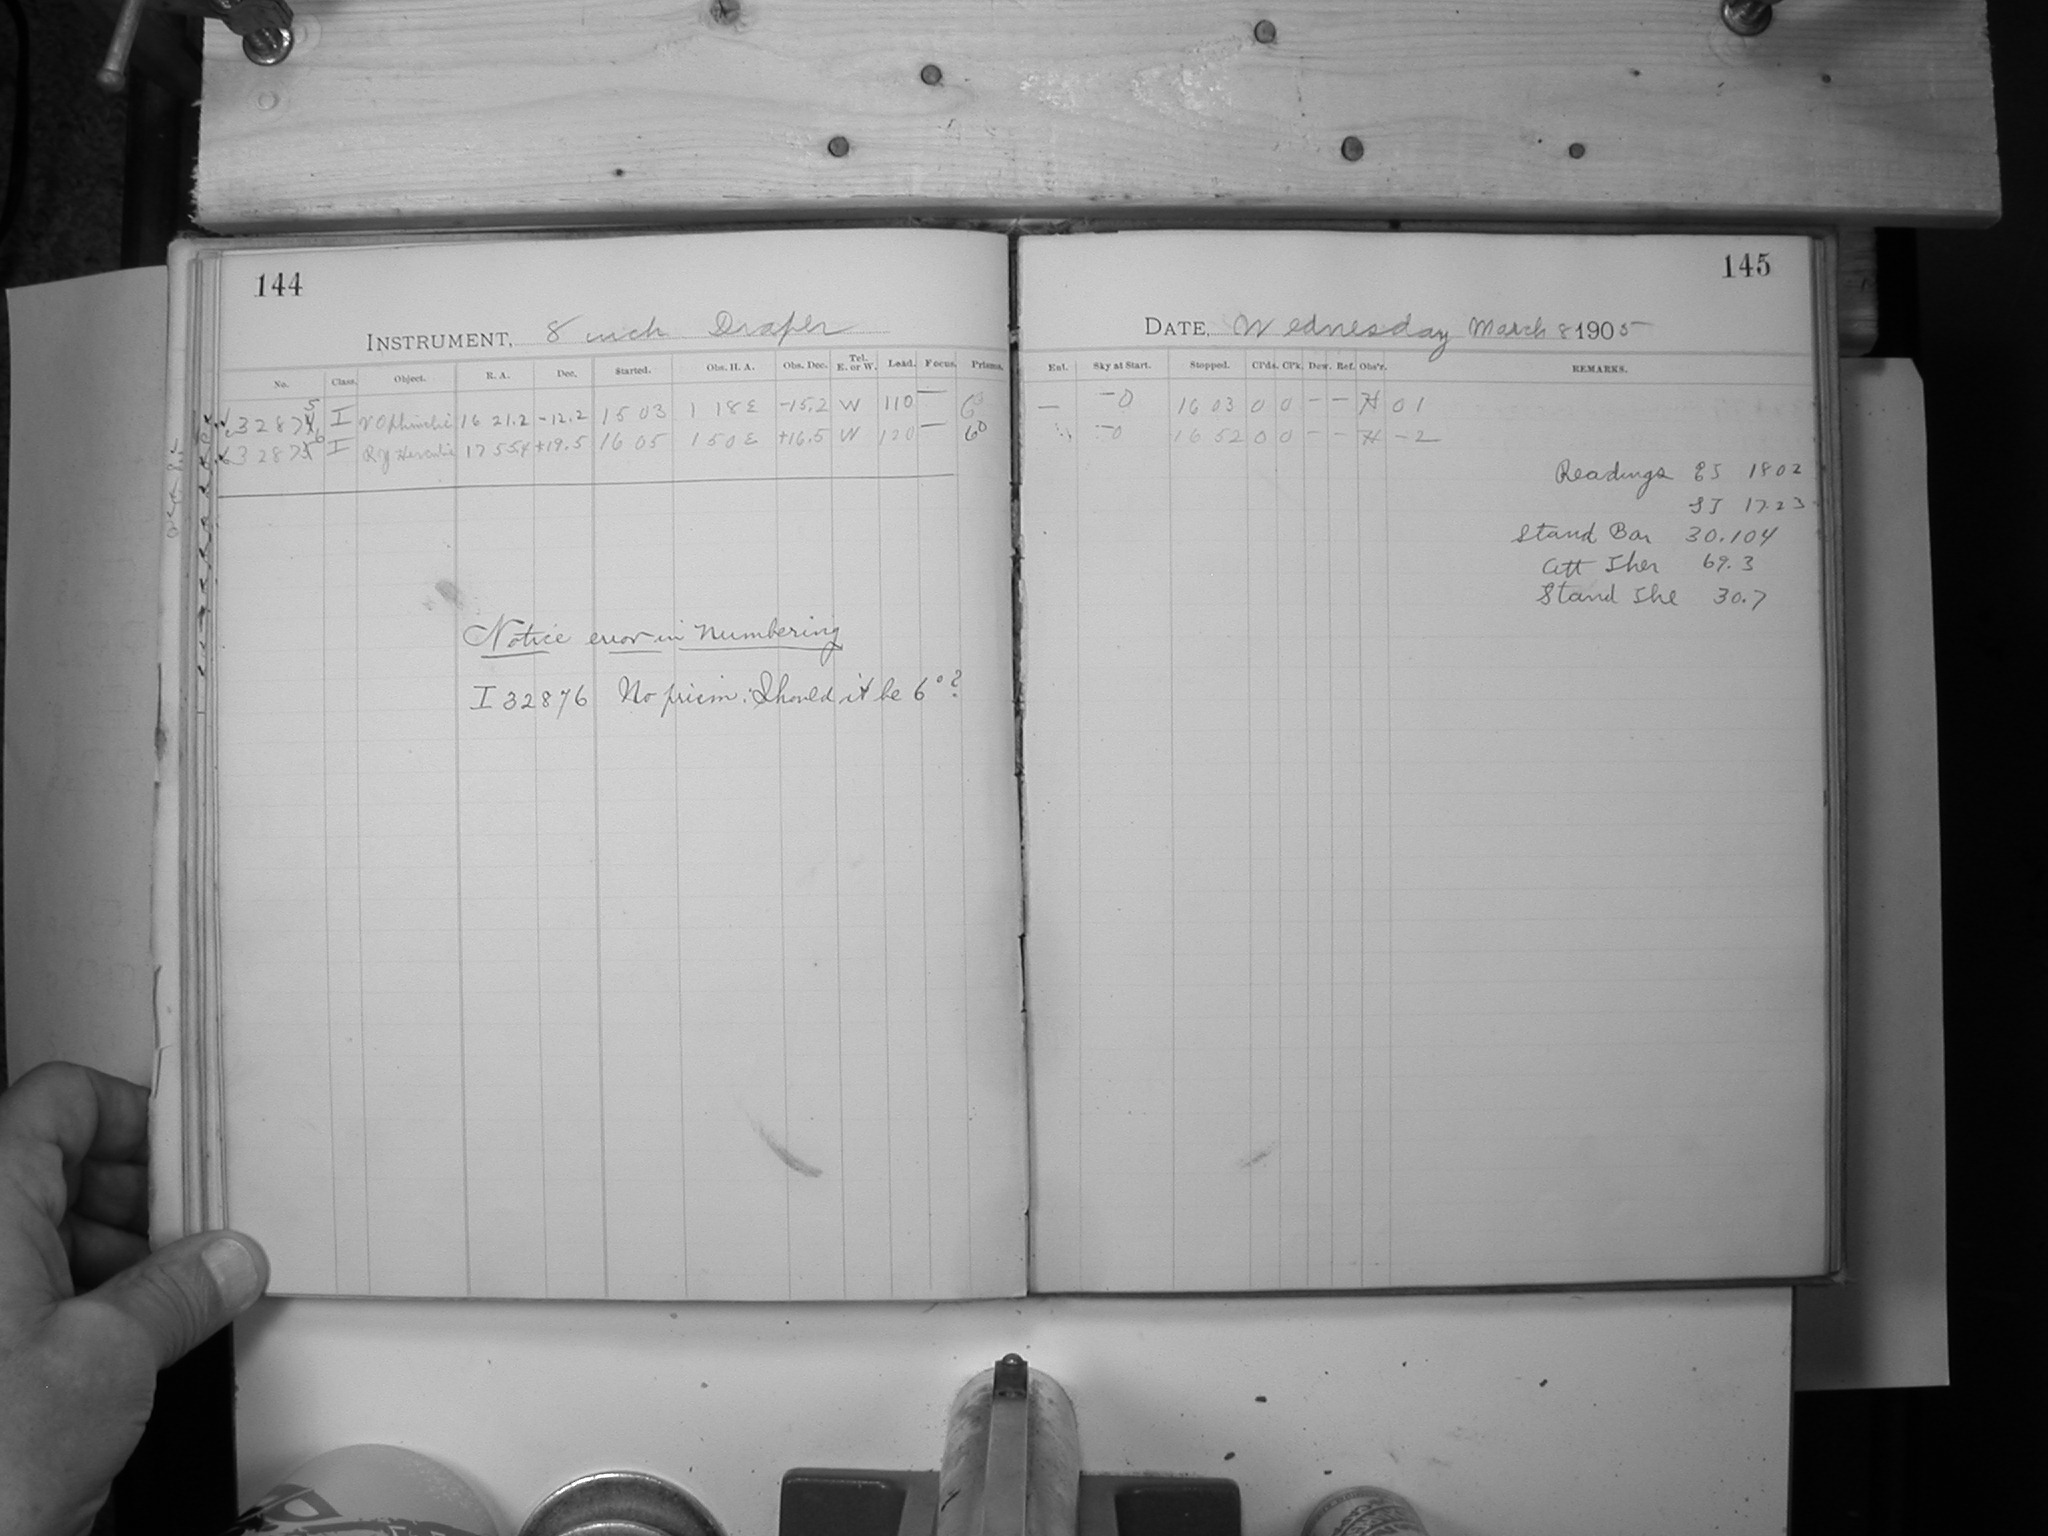 144
INSTRUMENT, 8 inch Draper
No. Class. Object. R. A. Dec. Started. Obs. H. A. Obs. Dec. Tel. E. or W. Load. Focus. Prisms.
32875 I V Ophiuchi 16 21.2 -12.2 15 03 1 18 E -15.2 W 110 — 6°
32876 I RY Herculis 17 55.4 +19.5 16 05 1 50 E +16.5 W 120 — 6°
Notice error in numbering
I 32876 No prism. Should it be 6°?
145
DATE, Wednesday March 8 1905
Ent. Sky at Start. Stopped. Cl'ds. Cl'k. Dew. Ref. Obs'r. REMARKS.
— -0 16 03 0 0 - - H 0 1
" -0 16 52 0 0 - - H -2
Readings ES 1802
SJ 17.23
Stand Bar 30.104
Att Ther 69.3
Stand The 30.7